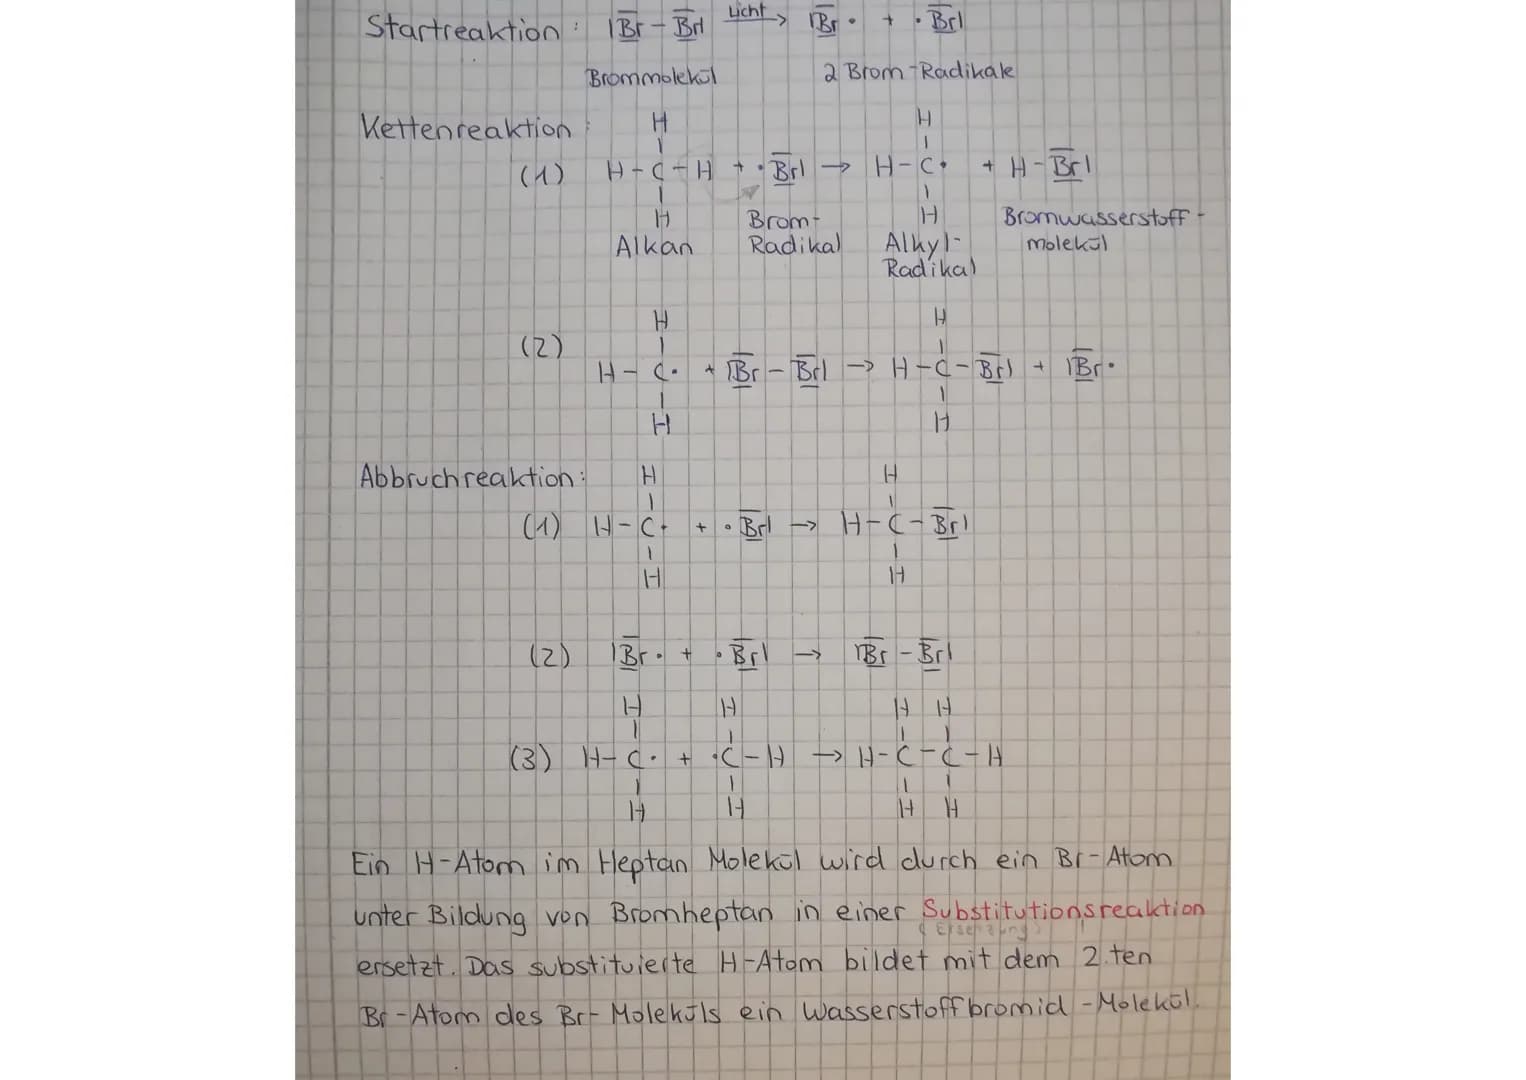 Startreaktion: |Br - Br| Licht → |Br· + ·Br|
Brommolekül 2 Brom-Radikale
Kettenreaktion:
H H
(1) H-C-H + ·Br| → H-C· + H-Br|
H H
Brom- Bromwasserstoff-
Alkan Radikal Alkyl- molekül
Radikal
H H
(2)
H-C· + |Br-Br| → H-C-Br| + |Br·
H H
Abbruchreaktion: H H
(1) H-C· + ·Br| → H-C-Br|
H H
(2) |Br· + ·Br| → |Br-Br|
H H H H
(3) H-C· + ·C-H → H-C-C-H
H H H H
Ein H-Atom im Heptan Molekül wird durch ein Br-Atom
unter Bildung von Bromheptan in einer Substitutionsreaktion
(Ersetzung)
ersetzt. Das substituierte H-Atom bildet mit dem 2.ten
Br-Atom des Br-Moleküls ein Wasserstoffbromid-Molekül.